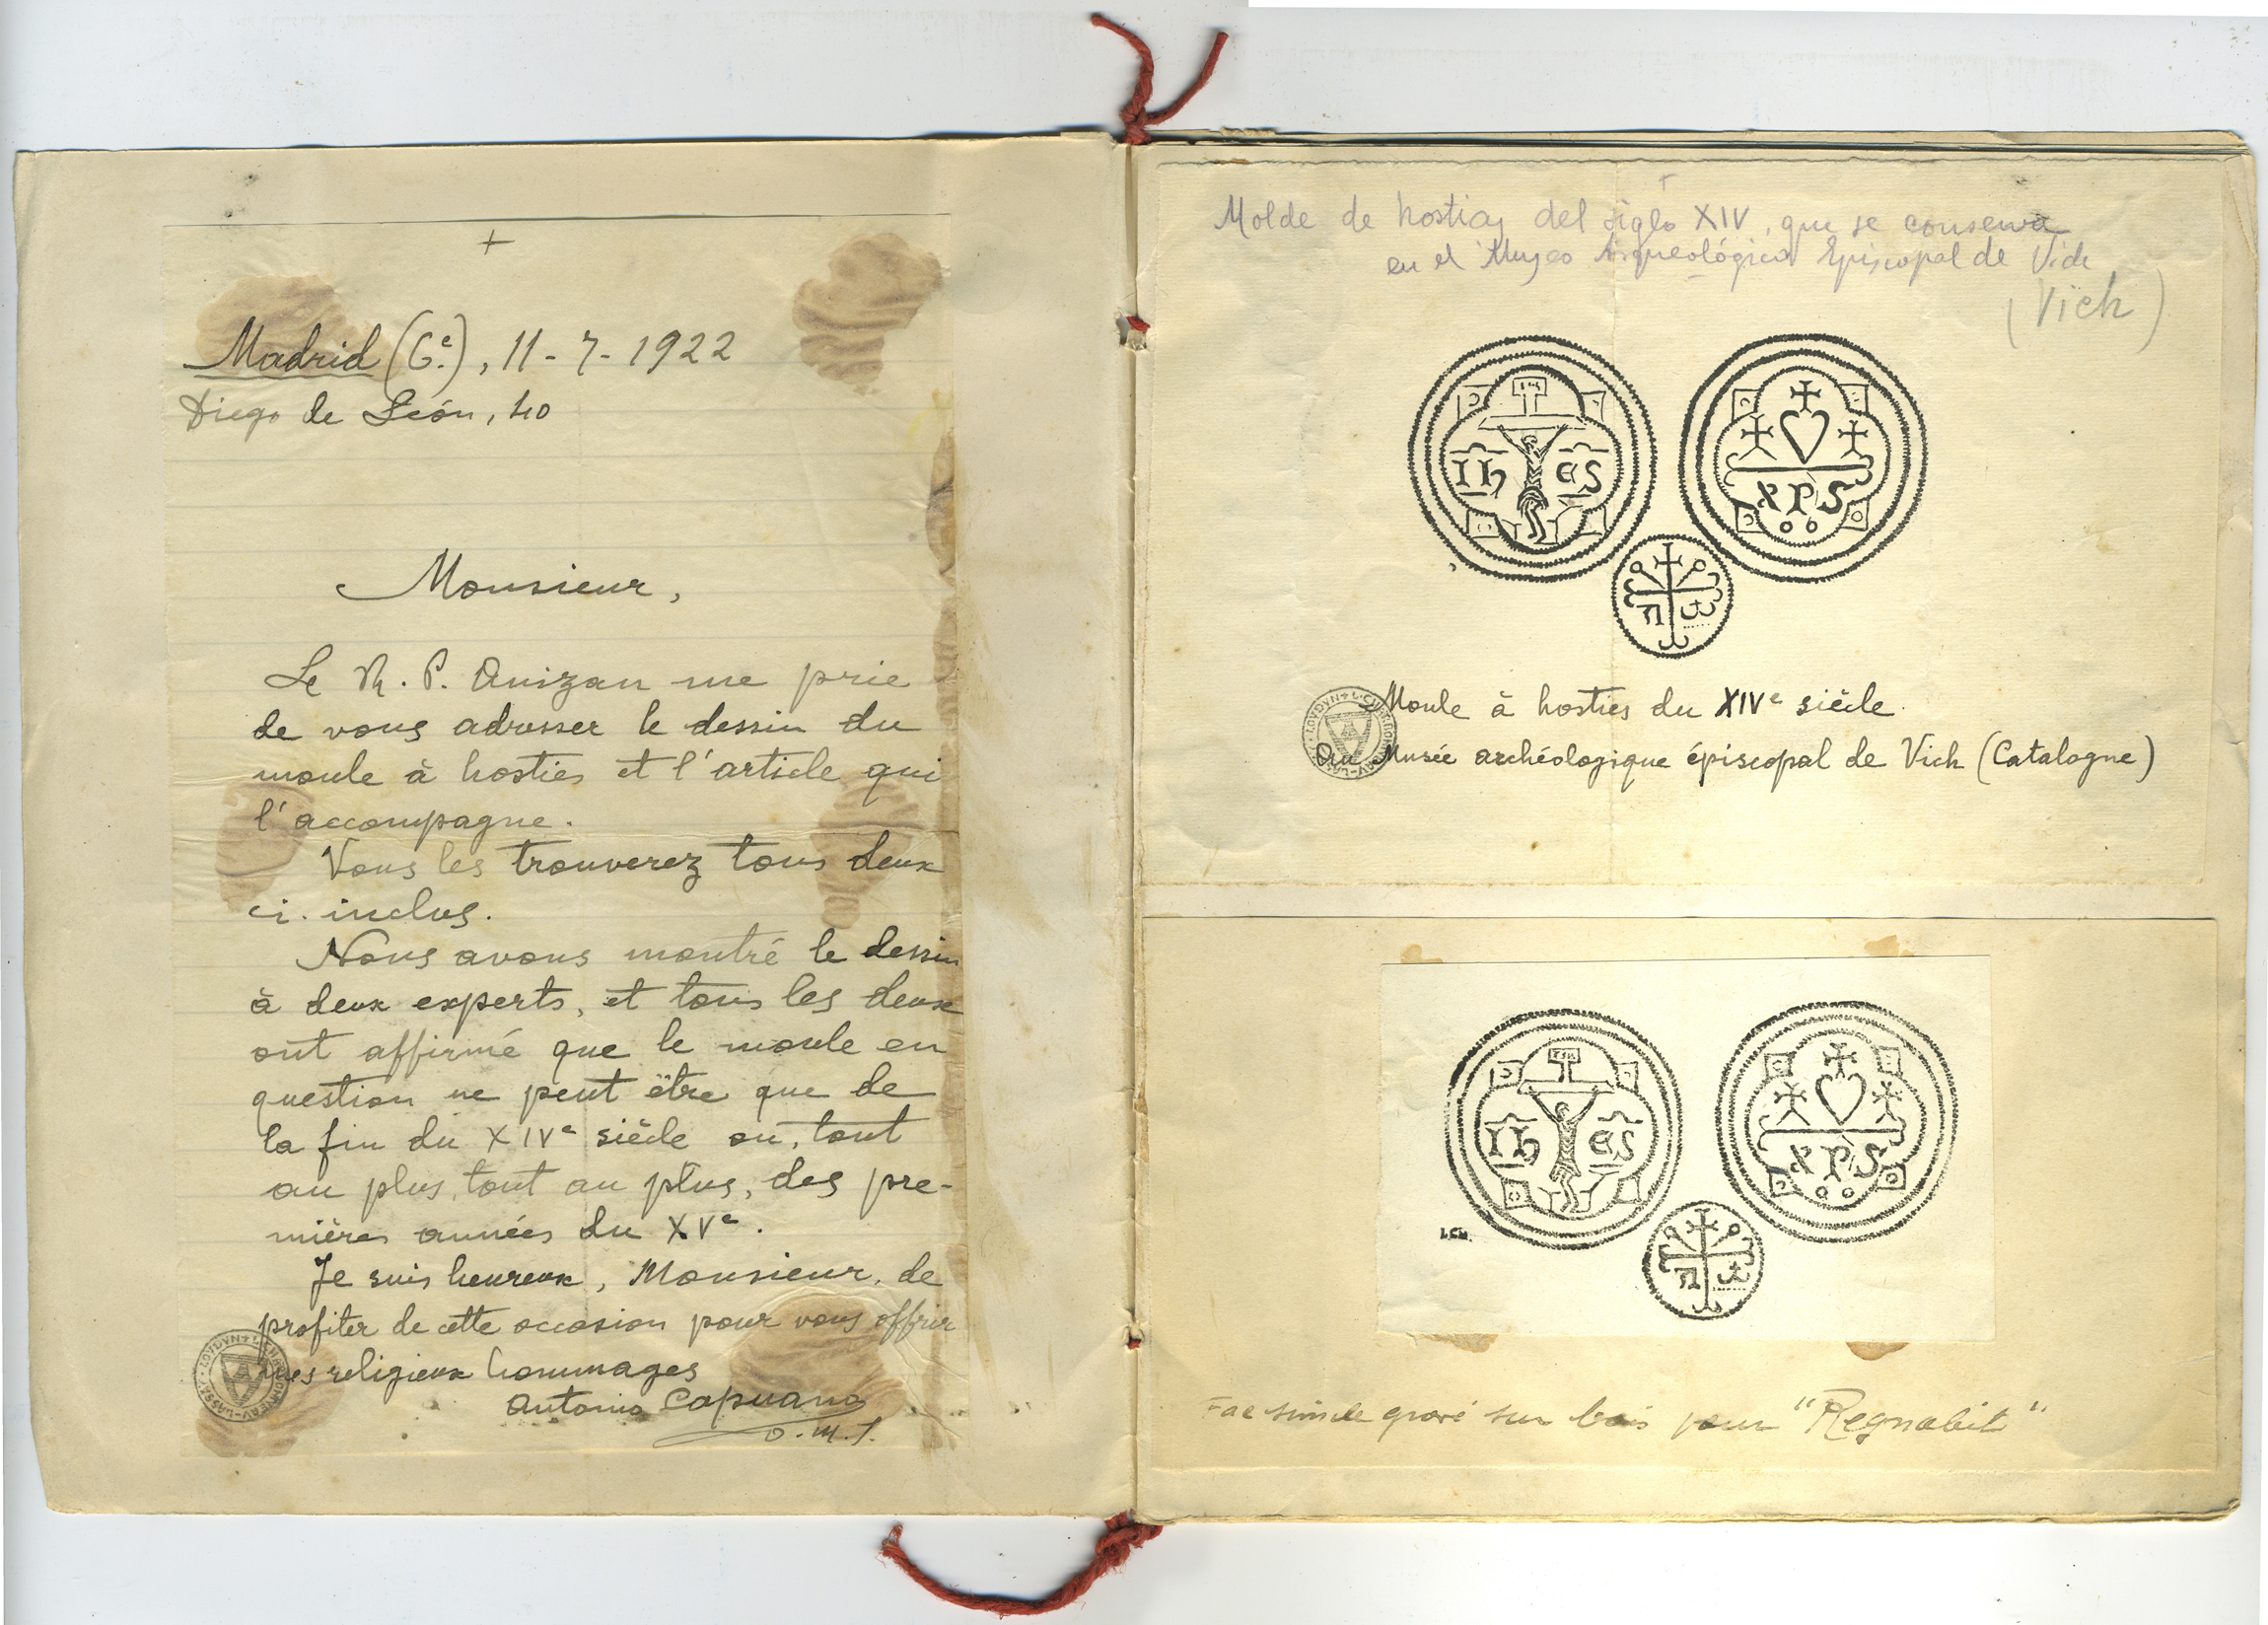 +
Madrid (6e.), 11-7-1922
Diego de León, 40
Monsieur,
Le R. P. Anizan me prie
de vous adresser le dessin du
moule à hosties et l'article qui
l'accompagne.
Vous les trouverez tous deux
ci-inclus.
Nous avons montré le dessin
à deux experts, et tous les deux
ont affirmé que le moule en
question ne peut être que de
la fin du XIVe siècle ou, tout
au plus, tout au plus, des pre-
mières années du XVe.
Je suis heureux, Monsieur, de
profiter de cette occasion pour vous offrir
mes religieux hommages
Antonio Capuano
O.M.I.
Molde de hostias del siglo XIV, que se conserva
en el Museo Arqueológico Episcopal de Vich
(Vich)
Ih es
XPS
Moule à hosties du XIVe siècle.
Au Musée archéologique épiscopal de Vich (Catalogne)
Ih es
XPS
L.CH.
Fac simile gravé sur bois pour "Regnabit"